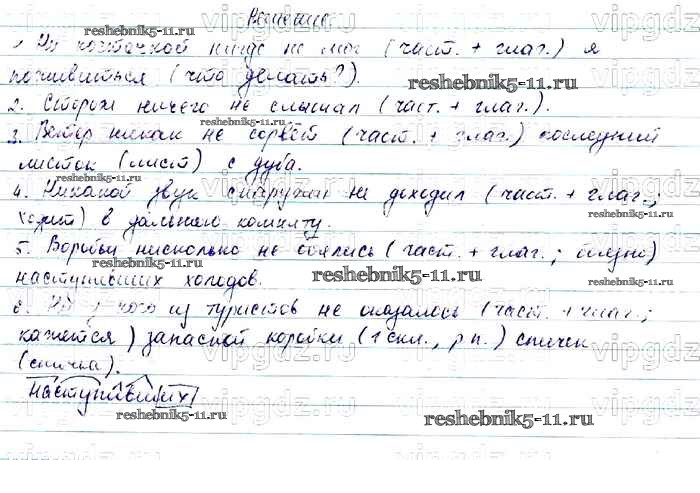 Решение
1. Ни косточкой нигде не мог (част. + глаг.) я
поживиться (что делать?).
2. Сторож ничего не слышал (част. + глаг.).
3. Ветер никак не сорвёт (част. + глаг.) последний
листок (лист) с дуба.
4. Никакой звук снаружи не доходил (част. + глаг.;
ходит) в дальнюю комнату.
5. Воробьи нисколько не боялись (част. + глаг.;
наступивших холодов.
6. Ни у кого из туристов не оказалось (част. + глаг.;
кажется) запасной коробки (1 скл., р.п.) спичек
(спичка).
наступивших
reshebnik5-11.ru
vipgdz.ru